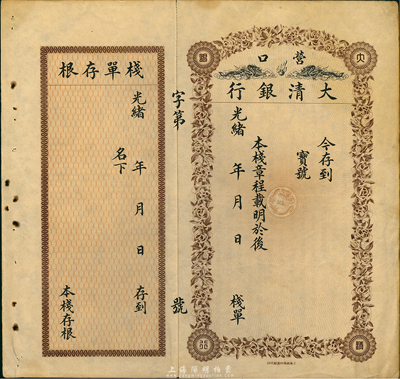 營口
大清銀行
今存到
寶號
本棧章程載明於後
光緒 年 月 日 棧單
字第 號
棧單存根
光緒 年 月 日 存到
名下
本棧存根
大
清
銀